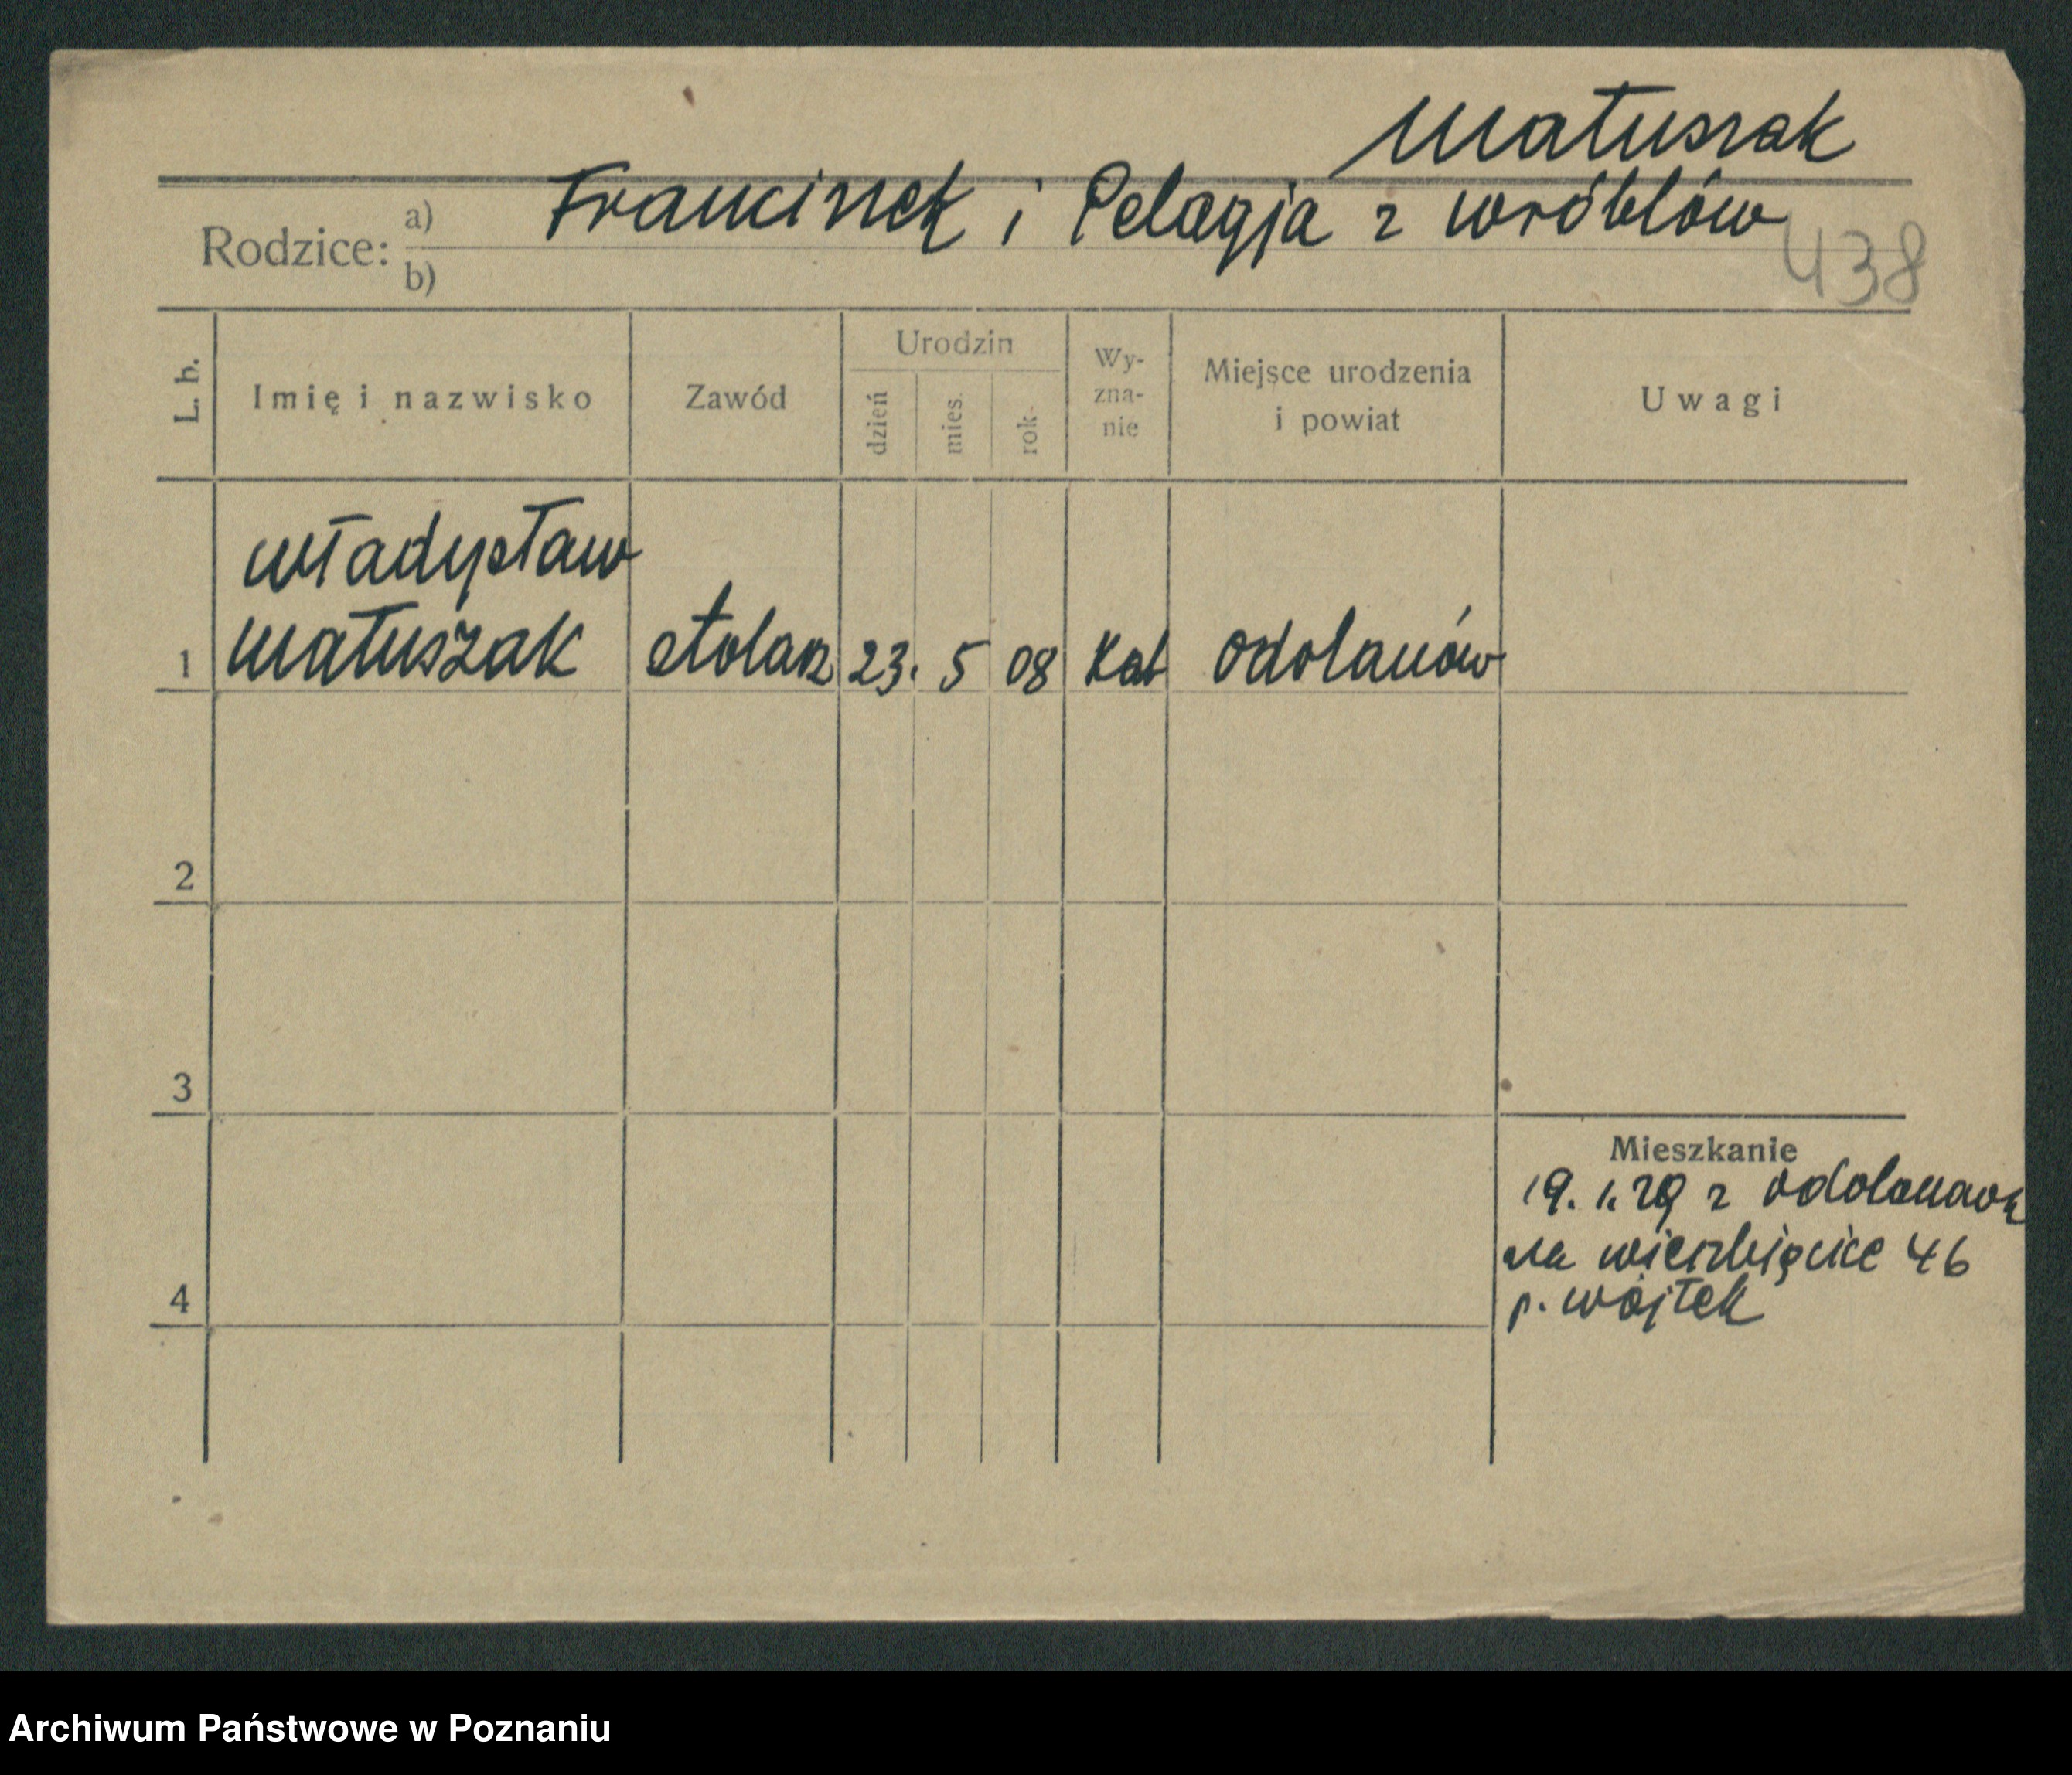 Matuszak
Rodzice: a) Franciszek i Pelagja z Wróblów
b)
438
L. b. Imię i nazwisko Zawód Urodzin dzień mies. rok- Wy-zna-nie Miejsce urodzenia i powiat Uwagi
Władysław
1 Matuszak stolarz 23. 5 08 kat Odolanów
2
3
Mieszkanie
19. 1. 29 z Odolanowa
na Wierzbięcice 46
4
p. Wojtek
Archiwum Państwowe w Poznaniu